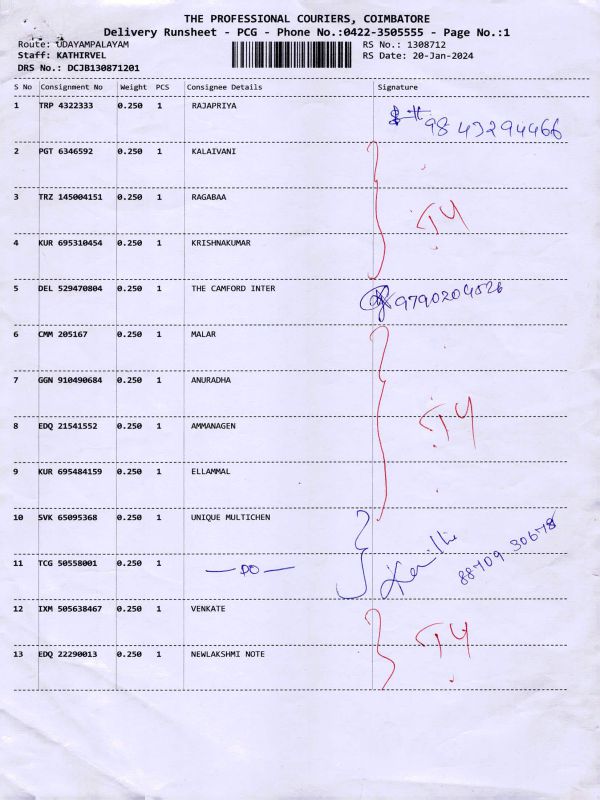 THE PROFESSIONAL COURIERS, COIMBATORE
Delivery Runsheet - PCG - Phone No.:0422-3505555 - Page No.:1
Route: UDAYAMPALAYAM RS No.: 1308712
Staff: KATHIRVEL RS Date: 20-Jan-2024
DRS No.: DCJB130871201
S No Consignment No Weight PCS Consignee Details Signature
1 TRP 4322333 0.250 1 RAJAPRIYA
98 43294466
2 PGT 6346592 0.250 1 KALAIVANI
3 TRZ 145004151 0.250 1 RAGABAA
4 KUR 695310454 0.250 1 KRISHNAKUMAR
5 DEL 529470804 0.250 1 THE CAMFORD INTER 9790204526
6 CMM 205167 0.250 1 MALAR
7 GGN 910490684 0.250 1 ANURADHA
8 EDQ 21541552 0.250 1 AMMANAGEN
9 KUR 695484159 0.250 1 ELLAMMAL
10 SVK 65095368 0.250 1 UNIQUE MULTICHEN
11 TCG 50558001 0.250 1 — DO — 88709 30678
12 IXM 505638467 0.250 1 VENKATE
13 EDQ 22290013 0.250 1 NEWLAKSHMI NOTE